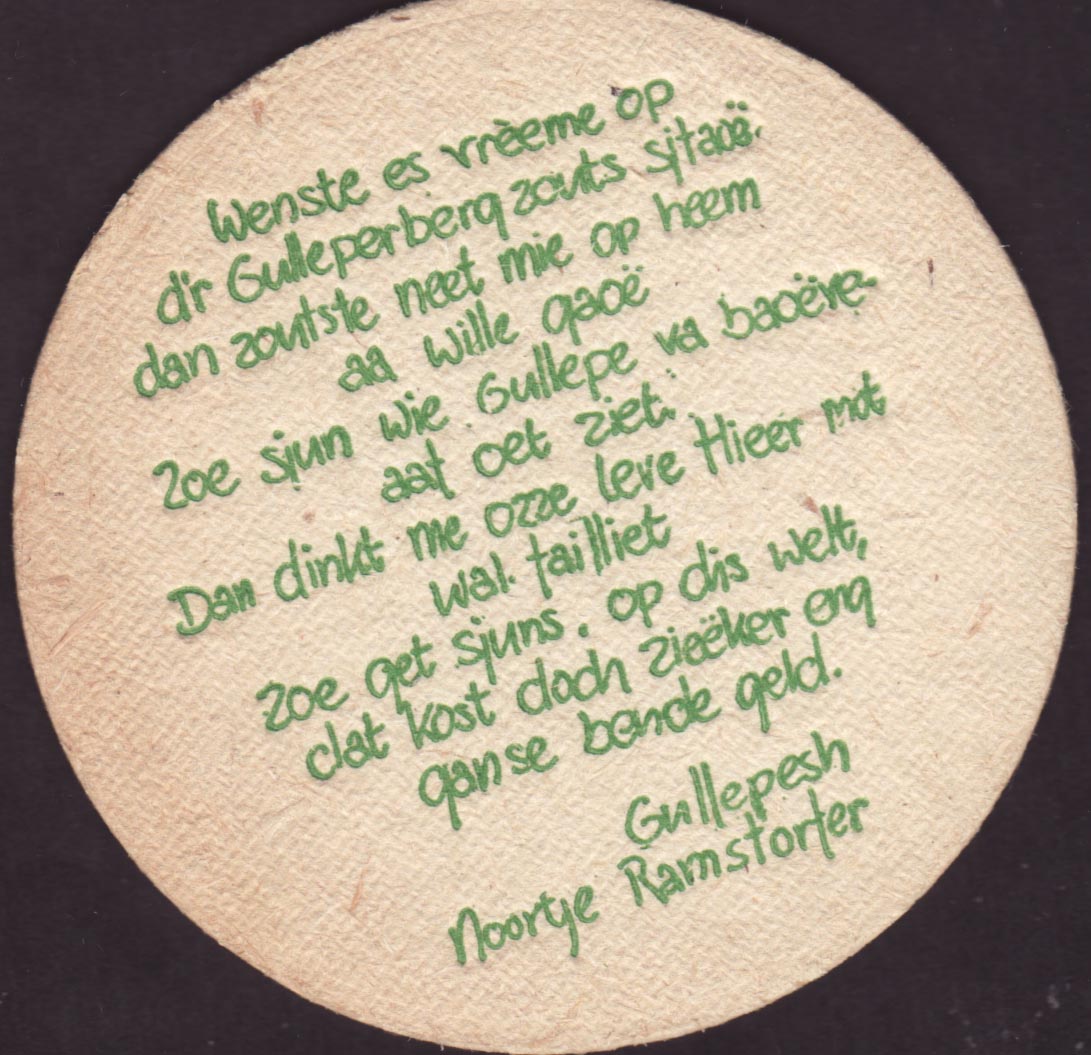 Wenste es vrèeme op
d'r Gulleperberg zouts sjtaoë.
dan zoutste neet mie op heem
aa wille gaoë
Zoe sjun wie Gullepe va baoëve-
aaf oet ziet.
Dan dinkt me ozze leve Hieer mot
wal failliet
zoe get sjuns. op dis welt,
dat kost doch zieëker eng
ganse bende geld.
Gullepesh
Noortje Ramstorfer